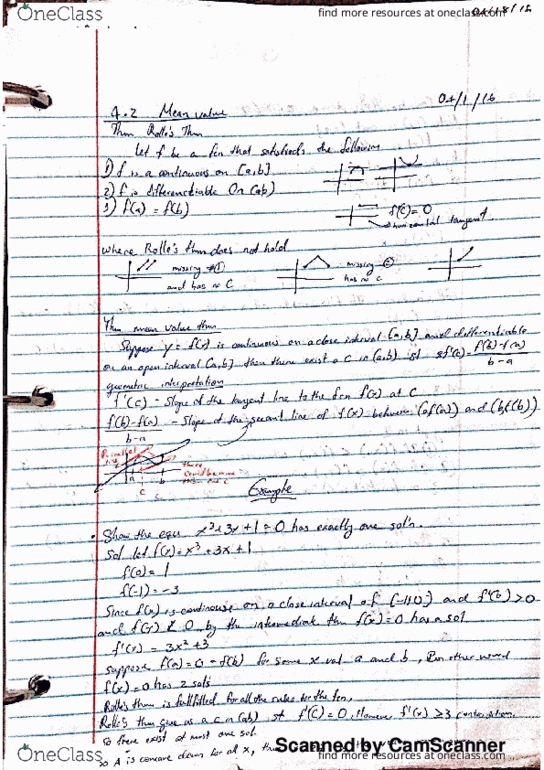 OneClass
find more resources at oneclass.com
04/1/16
4.2 Mean value
Thm Rolle's Thm
Let f be a fcn that satisfies the following
1) f is a continuous on [a,b]
2) f is differentiable On (a,b)
3) f(a) = f(b)
f'(c) = 0
horizontal tangent
where Rolle's thm does not hold
missing #①
and has no C
missing ②
has no c
Thm mean value thm
Suppose y = f(x) is continuous on a close interval [a,b] and differentiable
on an open interval (a,b) then there exist a c in (a,b) st f'(c) = f(b)-f(a)
b-a
geometric interpretation
f'(c) - Slope of the tangent line to the fcn f(x) at C
f(b)-f(a) - Slope of the secant line of f(x) between (a f(a)) and (b f(b))
b-a
Parallel
a
b
c
there
could be more
Example
• Show the eqn x³+3x+1=0 has exactly one soln.
Sol let f(x) = x³+3x+1
f(0) = 1
f(-1) = -3
Since f(x) is continuous on a close interval of [-1,0] and f(0) >0
and f(-1) < 0, by the intermediate thm f(x)=0 has a sol
f'(x) = 3x²+3
Suppose f(a)=0=f(b) for some x val a and b, in other word
f(x)=0 has 2 sols
Rolle's thm is fullfilled for all the rules for the fcn,
Rolle's thm give us a c in (a,b) st f'(c)=0, However f'(x) ≥3 contradiction.
so there exist at most one sol.
so A is concave down for all x,
Scanned by CamScanner
OneClass
find more resources at oneclass.com